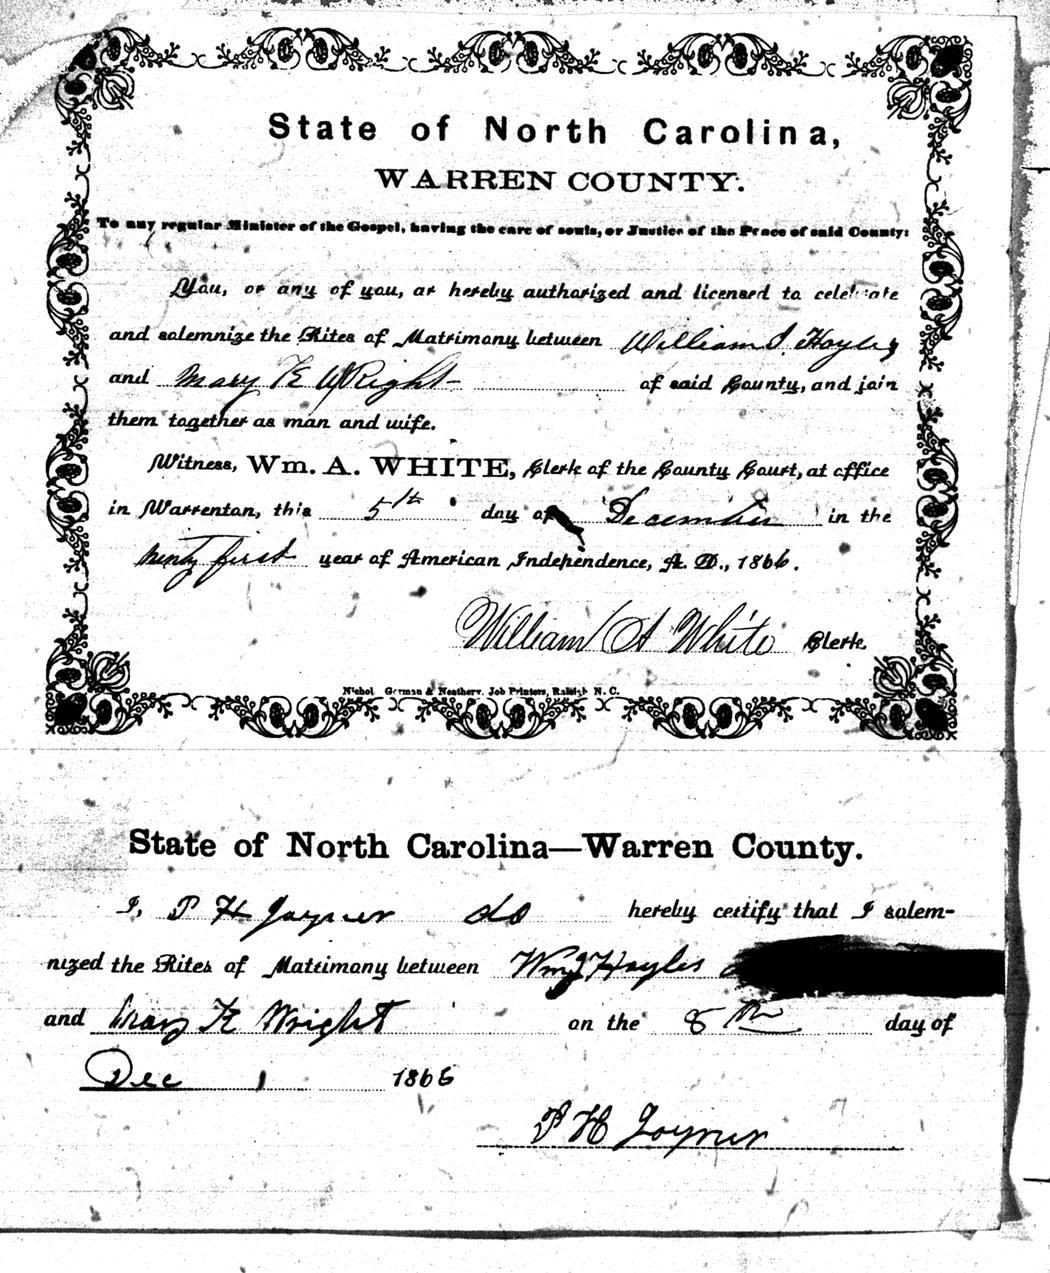 State of North Carolina,
WARREN COUNTY.
To any regular Minister of the Gospel, having the care of souls, or Justice of the Peace of said County:
You, or any of you, ar hereby authorized and licensed to celebrate
and solemnize the Rites of Matrimony between William J. Hayles
and Mary K Wright of said County, and join
them together as man and wife.
Witness, Wm. A. WHITE, Clerk of the County Court, at office
in Warrenton, this 5th day of December in the
ninty first year of American Independence, A. D., 1866.
William A White Clerk
Nichol Gorman & Neathery, Job Printers, Raleigh N. C.
State of North Carolina—Warren County.
I, P H Joyner do hereby certify that I solem-
nized the Rites of Matrimony between Wm J Hayles
and Mary K Wright on the 8th day of
Dec 1866
P H Joyner